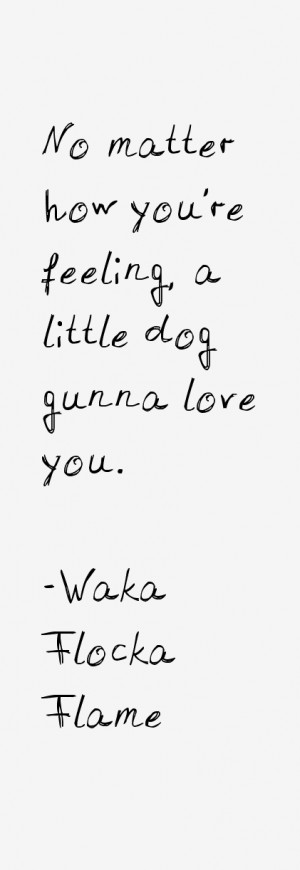 No matter
how you're
feeling, a
little dog
gunna love
you.
-Waka
Flocka
Flame